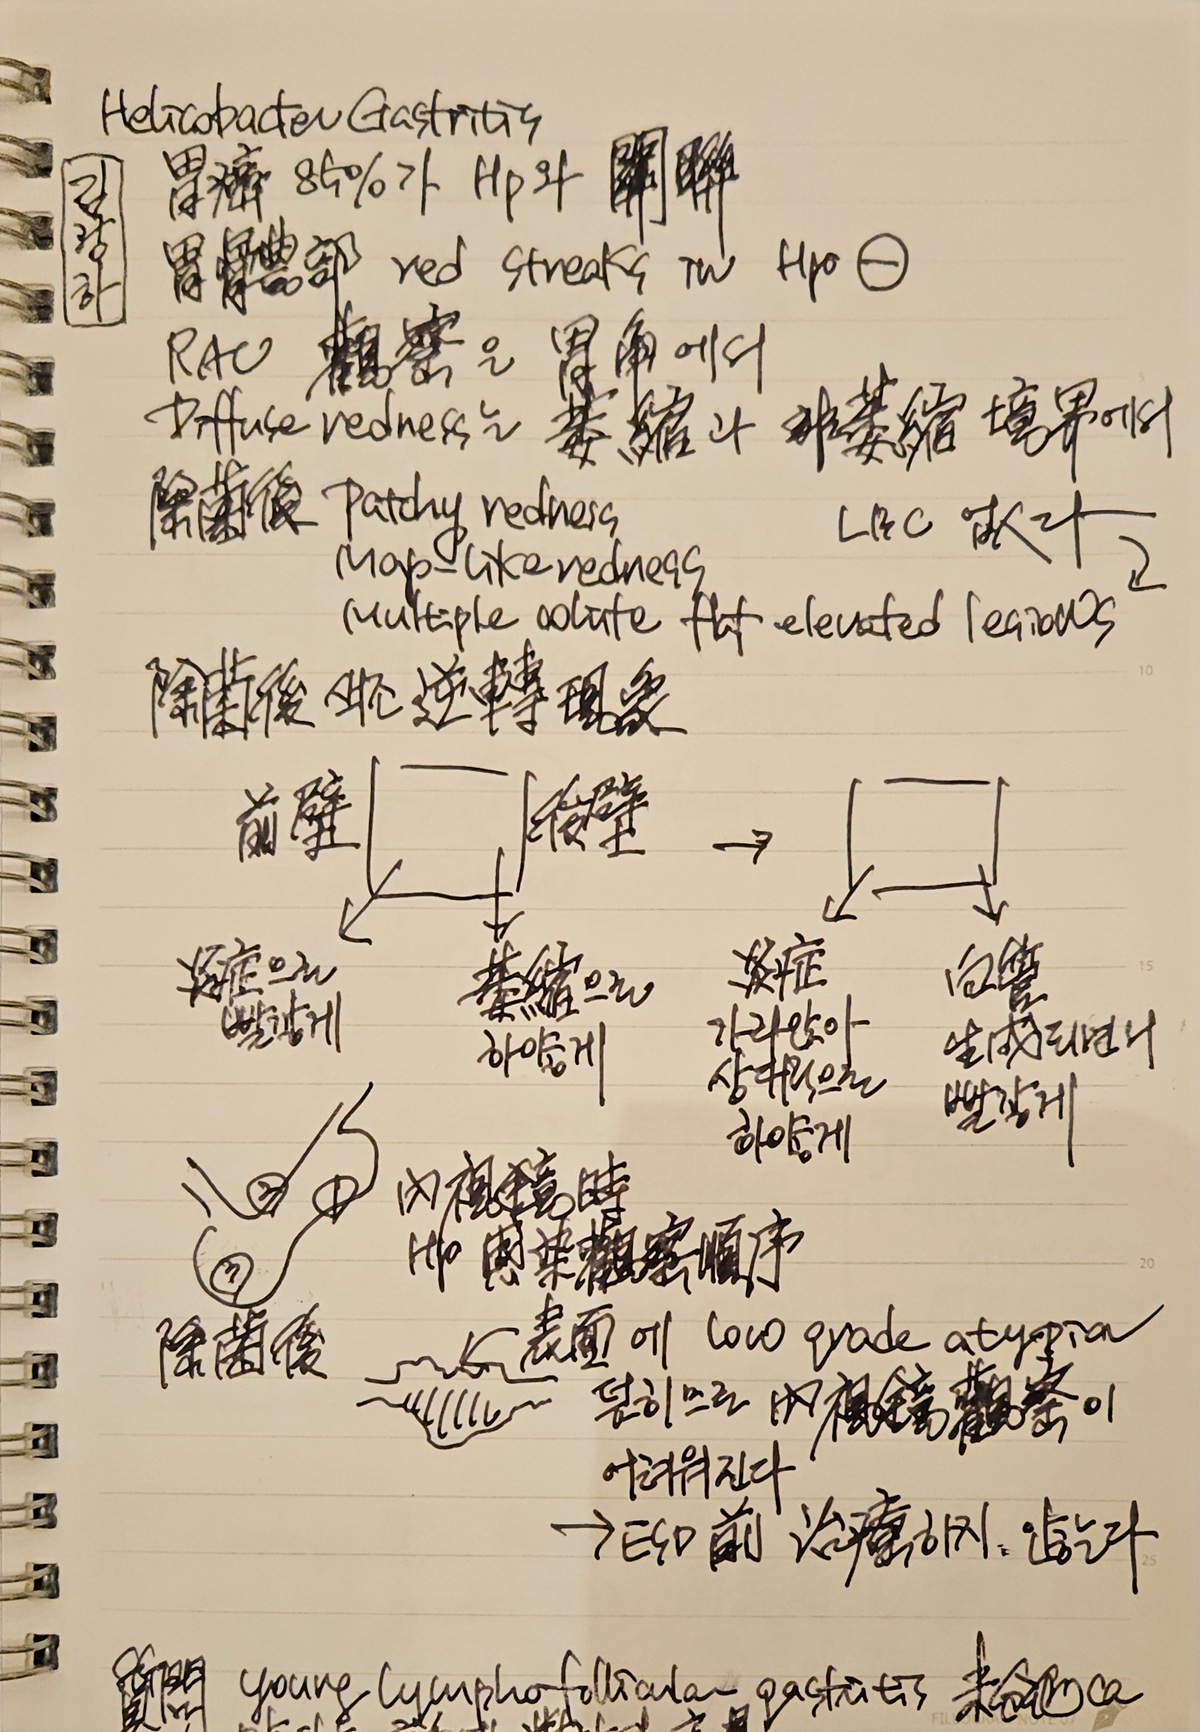 Helicobacter Gastritis
김광하
胃癌 85%가 Hp와 關聯
胃體部 red streaks in Hp ⊖
RAC 觀察은 胃角에서
Diffuse redness는 萎縮과 非萎縮 境界에서
除菌後 Patchy redness
LBC 없다
Map-like redness
Multiple white flat elevated lesions
除菌後 색조 逆轉現象
前壁 後壁 →
炎症으로 萎縮으로 炎症 血管
빨갛게 하얗게 가라앉아 生成되면서
상대적으로 빨갛게
하얗게
內視鏡時
Hp 感染觀察順序
除菌後 表面에 low grade atypia
덮히므로 內視鏡觀察이
어려워진다
→ ESD 前 治療하지 않는다
質問 young lymphofollicular gastritis 未分化 ca